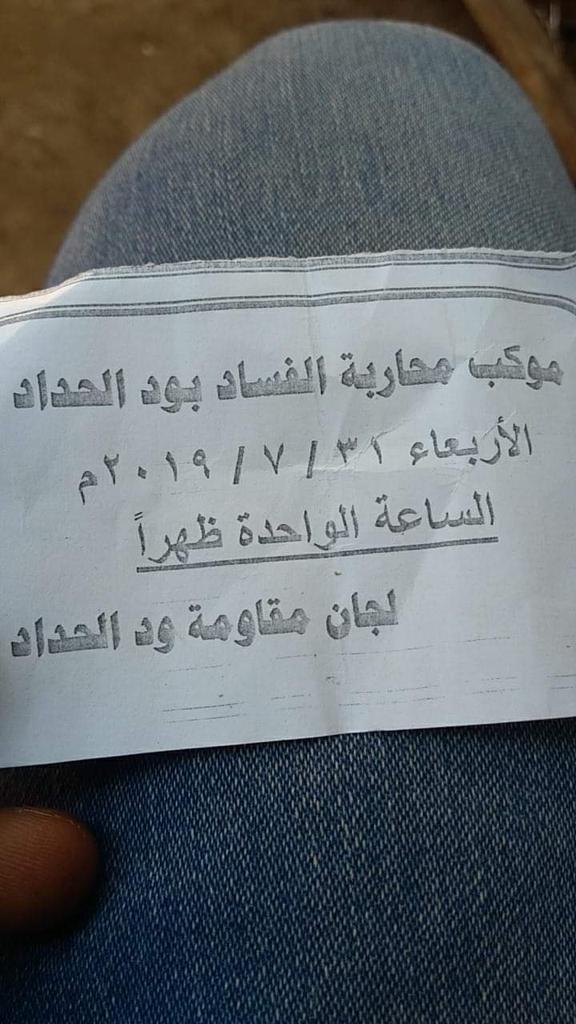 موكب محاربة الفساد بود الحداد
الأربعاء ٣١ / ٧ / ٢٠١٩م
الساعة الواحدة ظهراً
لجان مقاومة ود الحداد